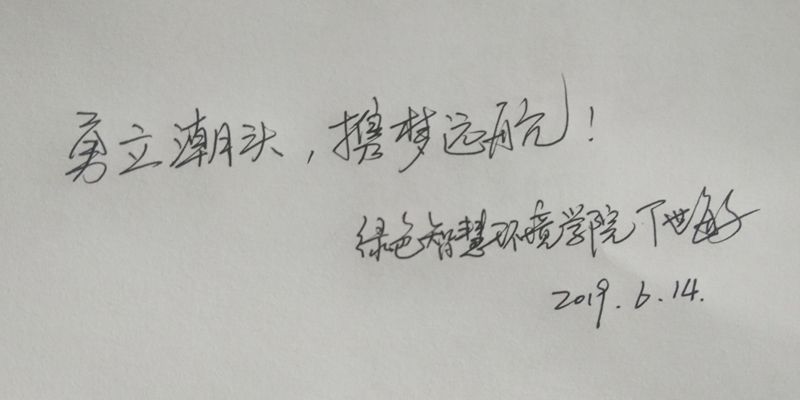 勇立潮头，携梦远航！
绿色智慧环境学院 丁世敏
2019.6.14.